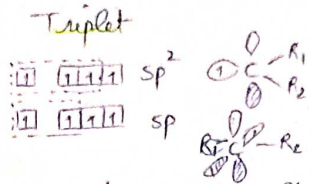 Triplet
1 1 1 1 sp² 1 C R₁ R₂
1 1 1 1 sp C R₂